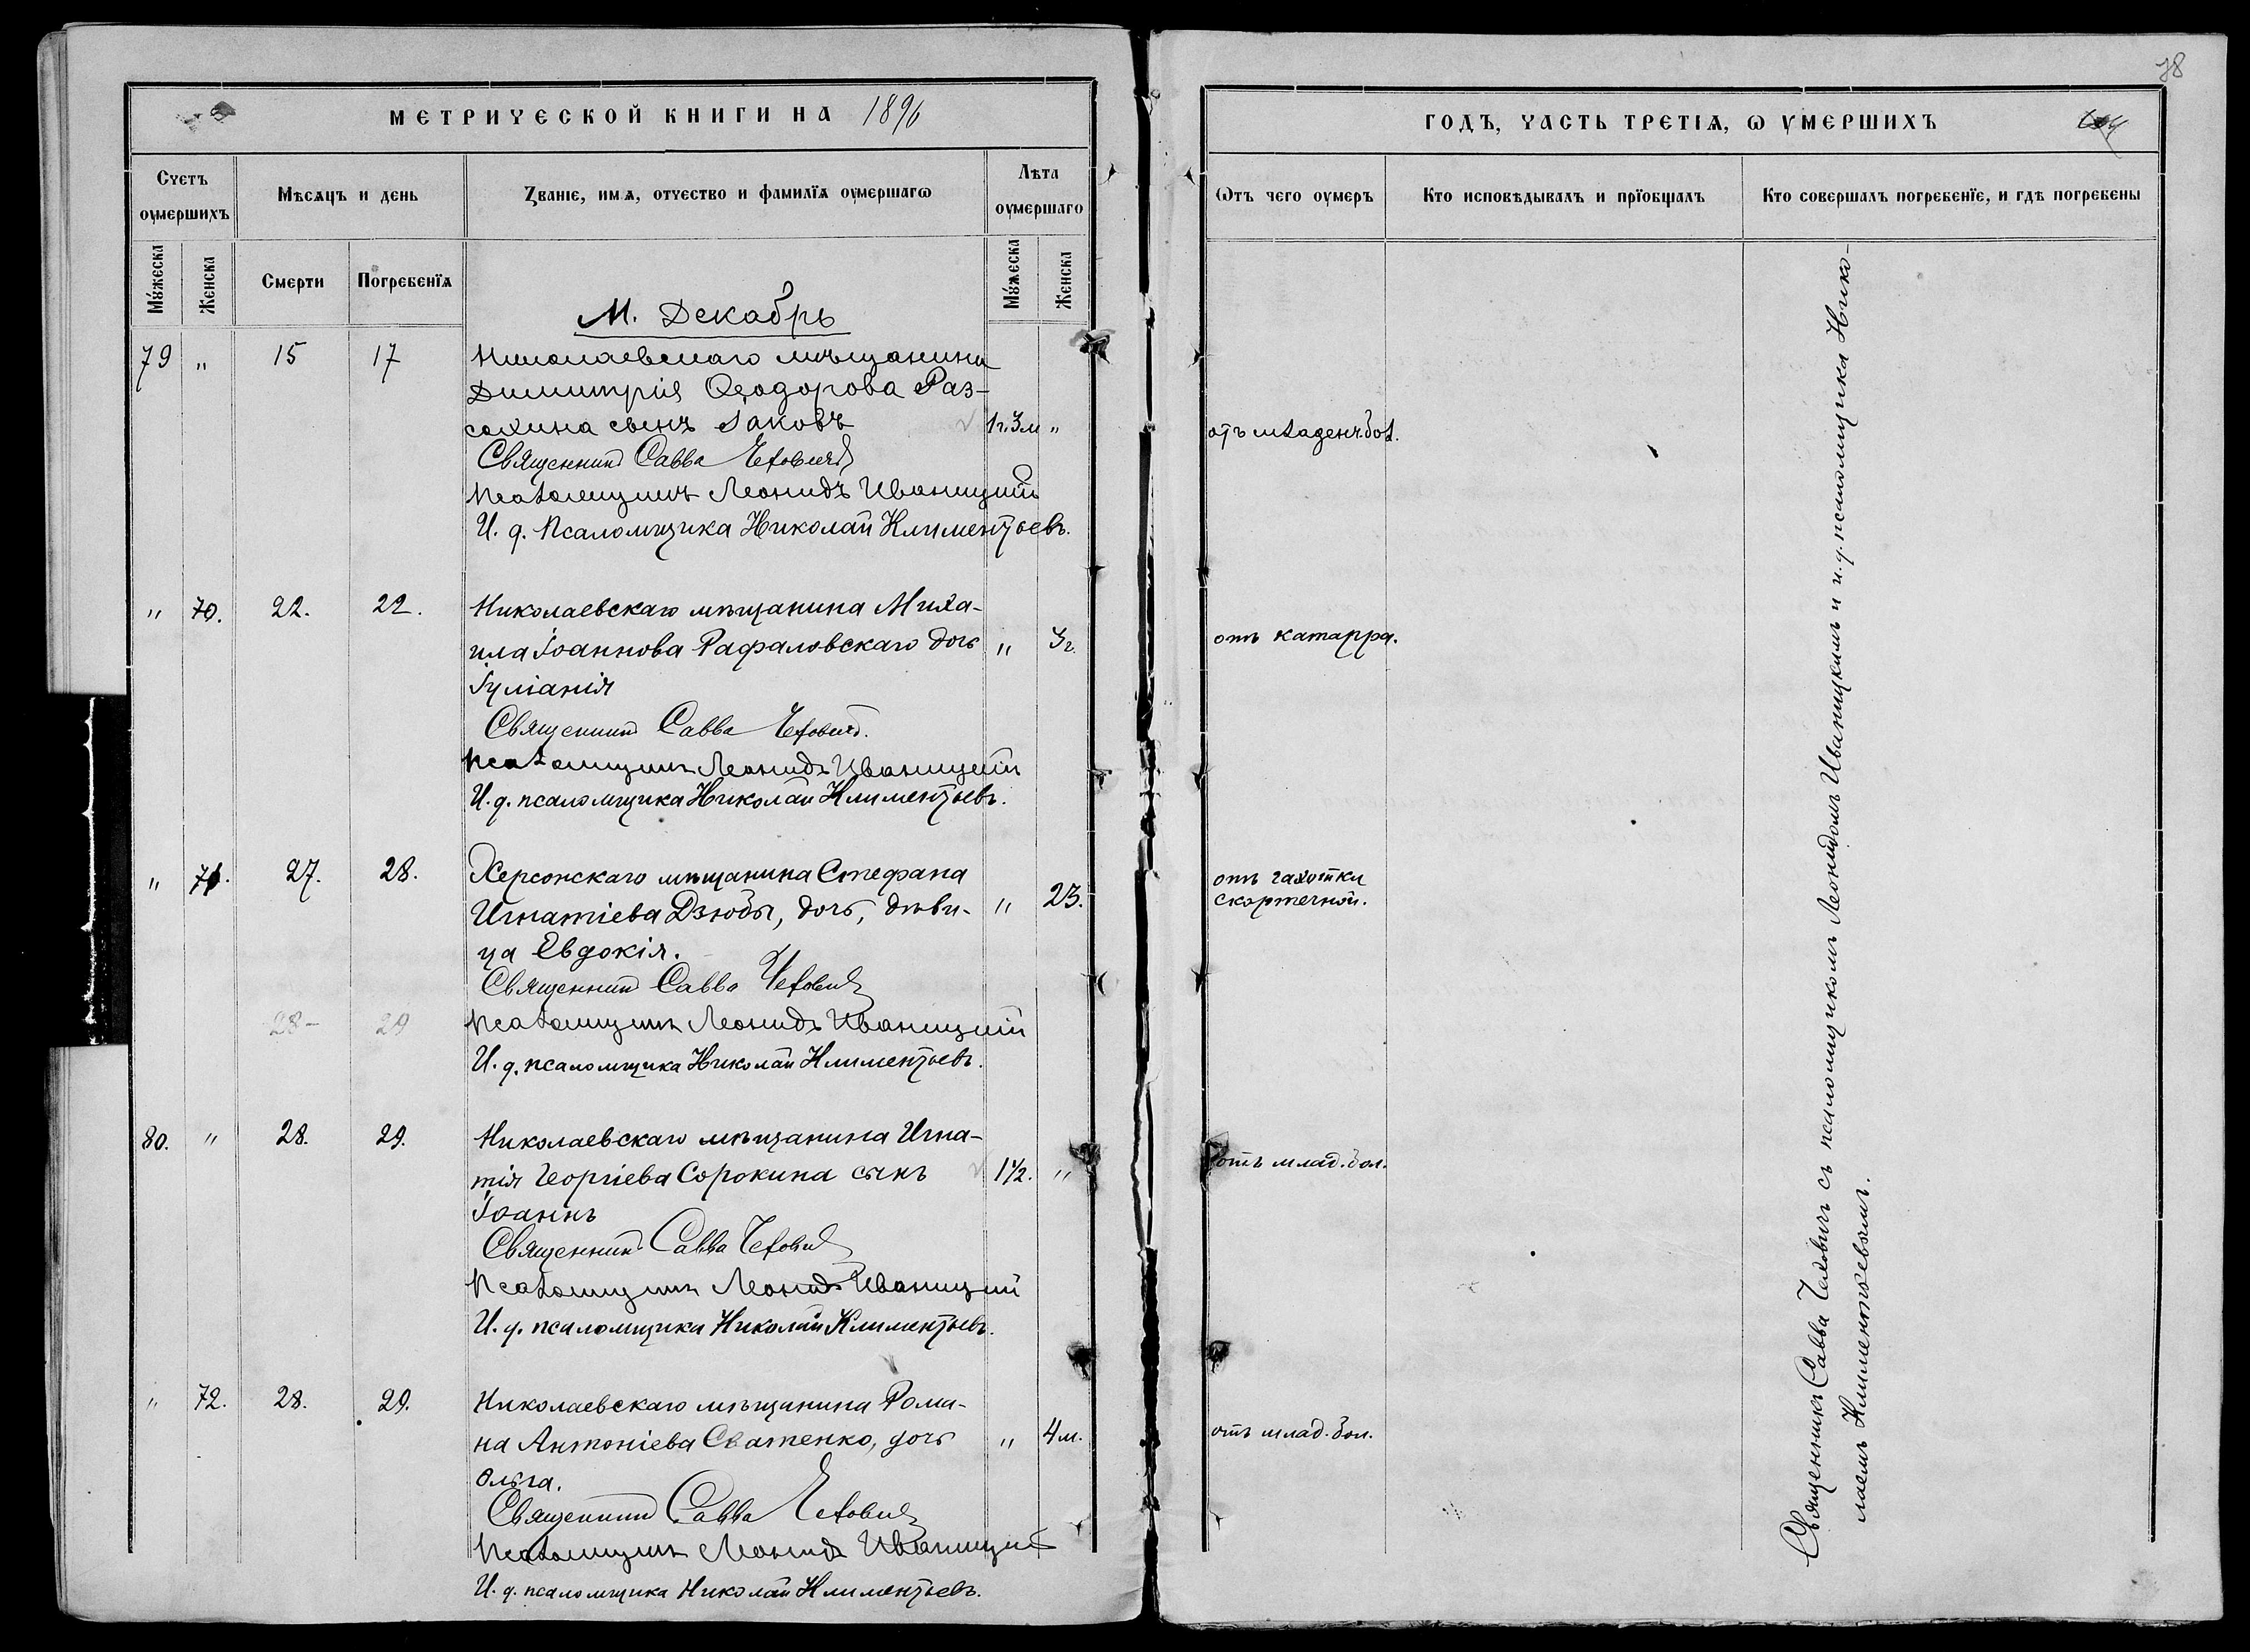 МЕТРИЧЕСКОЙ КНИГИ НА 1896
Счетъ оумершихъ
Мѣсяцъ и день
Званіе, имѧ, отчество и фамилїѧ оумершагѡ
Лѣта оумершаго
Мꙋжеска
Женска
Смерти
Погребенїѧ
Мꙋжеска
Женска
М. Декабрь
79 " 15 17 Николаевскаго мѣщанина
Димитрія Ѳеодорова Раз-
сохина сынъ Іаковъ 1г.3м "
Священникъ Савва Чеховичъ
Псаломщикъ Леонидъ Иваницкій
И. д. Псаломщика Николай Климентьевъ.
" 70. 22. 22. Николаевскаго мѣщанина Миха-
ила Іоаннова Рафаловскаго дочь " 3г.
Іуліанія
Священникъ Савва Чеховичъ.
Псаломщикъ Леонидъ Иваницкій
И. д. псаломщика Николай Климентьевъ.
" 71. 27. 28. Херсонскаго мѣщанина Стефана
Игнатіева Дзюбы, дочь, дѣви- " 23.
ца Евдокія.
Священникъ Савва Чеховичъ
28- 29 Псаломщикъ Леонидъ Иваницкій
И. д. псаломщика Николай Климентьевъ.
80. " 28. 29. Николаевскаго мѣщанина Игна-
тія Георгіева Сорокина сынъ 1 1/2. "
Іоаннъ
Священникъ Савва Чеховичъ
Псаломщикъ Леонидъ Иваницкій
И. д. псаломщика Николай Климентьевъ.
" 72. 28. 29. Николаевскаго мѣщанина Рома-
на Антоніева Сватенко, дочь " 4м.
Ольга.
Священникъ Савва Чеховичъ
Псаломщикъ Леонидъ Иваницкій
И. д. псаломщика Николай Климентьевъ.
78
ГОДЪ, ЧАСТЬ ТРЕТІѦ, Ѡ ОУМЕРШИХЪ
Ѿтъ чего оумеръ
Кто исповѣдывалъ и прїобщалъ
Кто совершалъ погребенїе, и гдѣ погребены
отъ младенч. бол.
отъ катарра.
отъ чахотки
скоротечной.
отъ млад. бол.
отъ млад. бол.
Священникъ Савва Чеховичъ съ псаломщикомъ Леонидомъ Иваницкимъ и и. д. псаломщика Нико-
лаемъ Климентьевымъ.